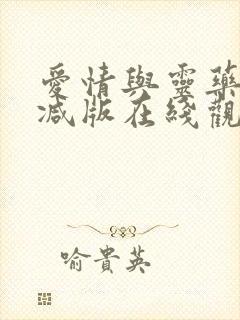 愛情與靈藥
減版在綫觀
喻貴英